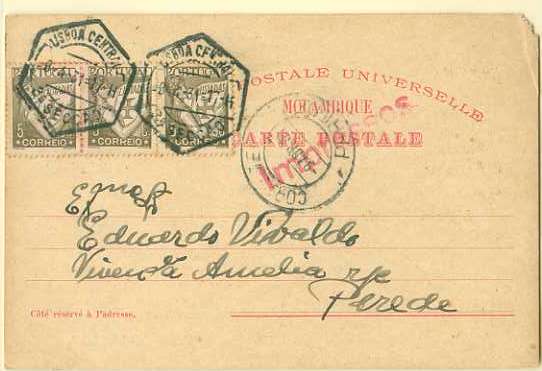 LISBOA CENTRAL
2ª SECÇÃO
LISBOA CENTRAL
2ª SECÇÃO
5 CORREIO 5
CORREIO 5
CORREIO
POSTALE UNIVERSELLE
MOÇAMBIQUE
CARTE POSTALE
Impressos
Exmo Sr
Eduardo Vivaldo
Vivenda Amelia r/c
Parede
Côté réservé à l'adresse.